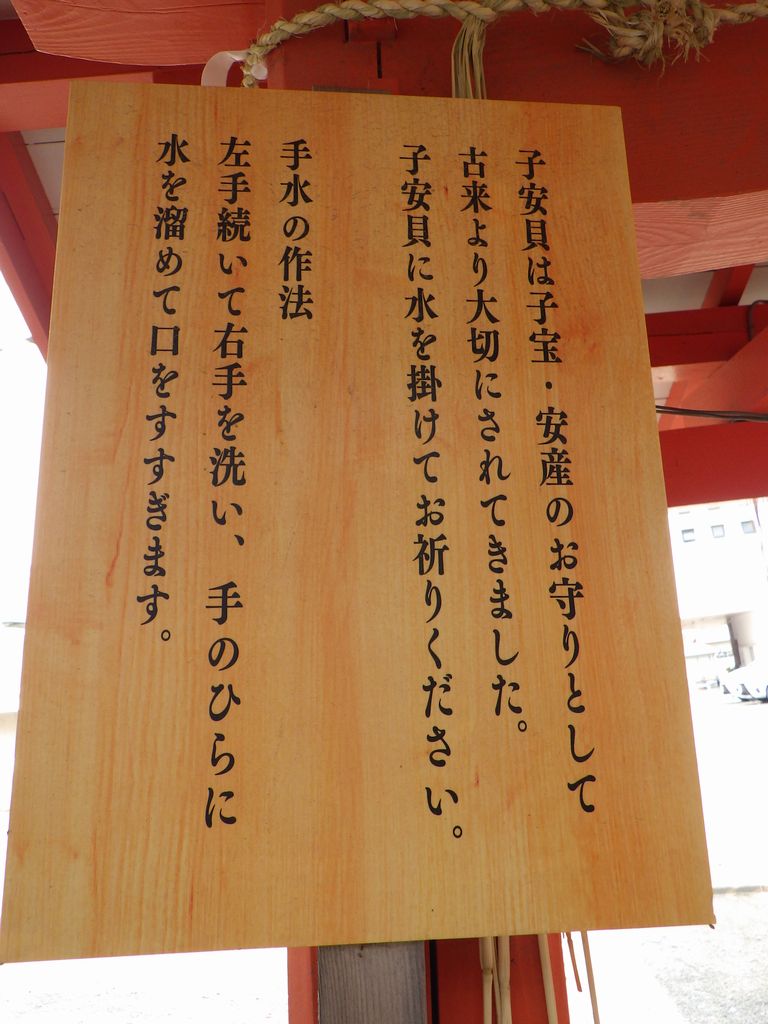 子安貝は子宝・安産のお守りとして
古来より大切にされてきました。
子安貝に水を掛けてお祈りください。
手水の作法
左手続いて右手を洗い、手のひらに
水を溜めて口をすすぎます。